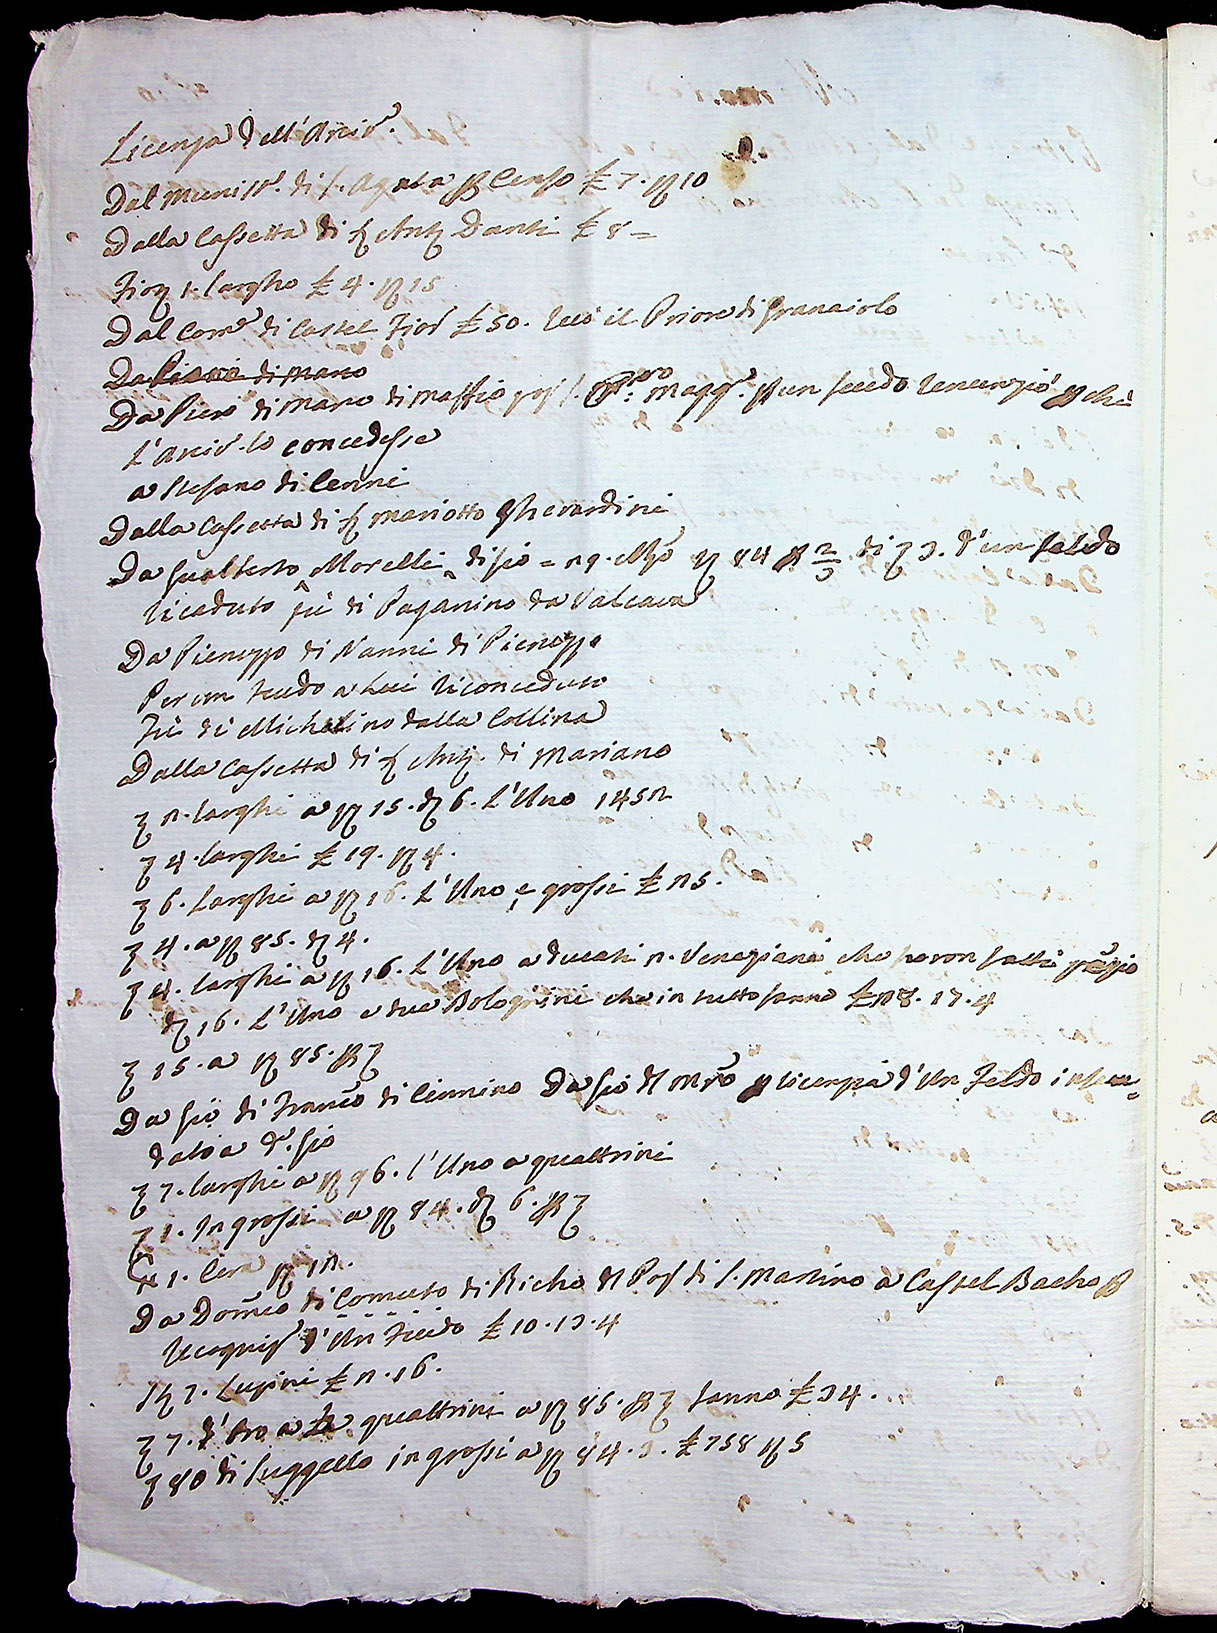 Licenza dell'Arciv.
Dal Munist. di S. Agata p Censo £ 7. β 10
Dalla Cassetta di S Ant. Danti £ 8 =
Fior 1. largho £ 4. β 15
Dal Com. di Castel Fior £ 50. Recò il Priore di Granaiolo
Da Piero di Mano
Da Piero di Mano di Maffio pos S. Magg. p un feudo renunziò p che
L'Arciv. lo concedesse
a Stefano di Cenni
Dalla Cassetta di S Mariotto Gherardini
Da Gualberto Morelli di Gio = 29. Mzo β 84 p 2/3 di 3. d'un feudo
ricaduto fù di Paganino da Valcava
Da Pierozzo di Nanni di Pierozzo
Per un feudo a Lui riconceduto
Fù di Michelino dalla Collina
Dalla Cassetta di S Ant. di Mariano
2. larghi a β 15. d 6. L'Uno 1452
4. larghi £ 19. β 4.
6. Larghi a β 16. L'Uno, e grossi £ 25.
4. a β 85. d 4.
4. larghi a β 16. L'Uno a ducati 2. Veneziani che furon fatti
d 16. L'Uno e due Bolognini che in tutto fanno £ 28. 17. 4
15. a β 85. p
Da Gio di Franco di Cennino Da Gio d p licenzia d'Un Feudo infeu=
dato a d. Gio
7. larghi a β 96. l'Uno a quattrini
1. In grossi a β 84. d 6. p
1. Cera β 12.
Da Domco di Comuto di Richo d Pos di S. Martino a Castel Bacho p
Recogniz d'Un Feudo £ 10. 13. 4
7. Lupini £ 2. 16.
7. d'Oro a quattrini a β 85. p fanno £ 34.
80 di Suggello in grossi a β 84. 3. £ 758 β 5